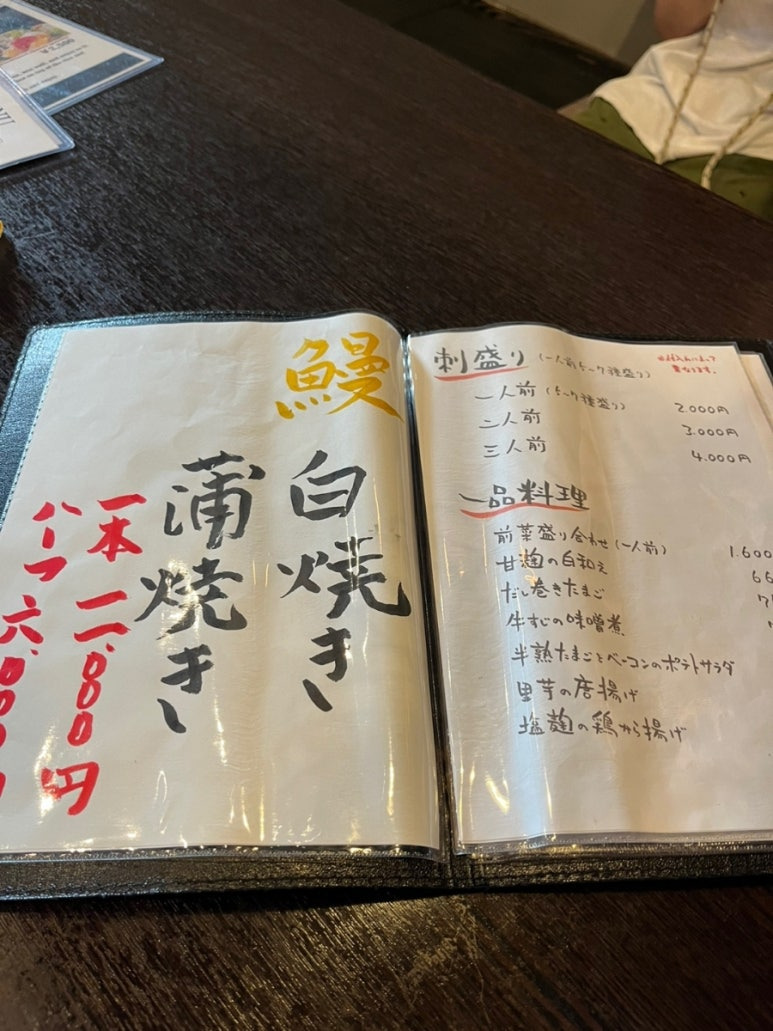 ¥2,500
鰻
白焼き
蒲焼き
一本 一二.000円
ハーフ 六.000円
刺盛り (一人前 5〜7種盛り) ※仕入れによって
異なります。
一人前 (5〜7種盛り) 2.000円
二人前 3.000円
三人前 4.000円
一品料理
前菜盛り合わせ (一人前) 1.600
甘麹の白和え
だし巻きたまご
牛すじの味噌煮
半熟たまごとベーコンのポテトサラダ
里芋の唐揚げ
塩麹の鶏から揚げ